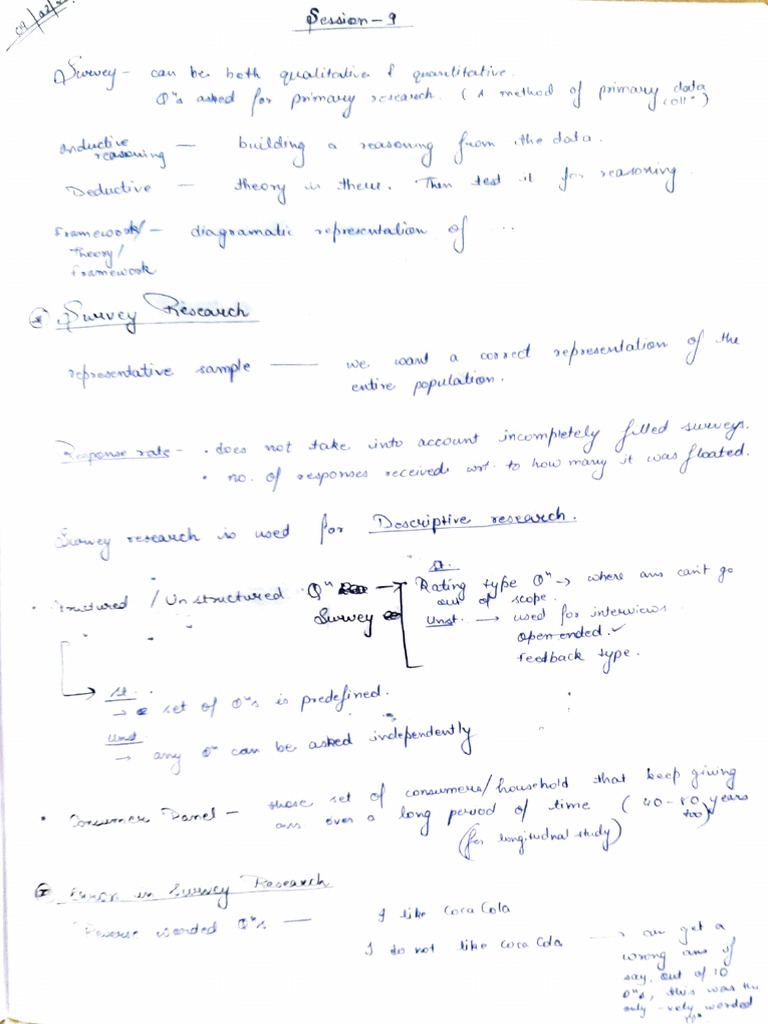 Session - 9
Survey - can be both qualitative & quantitative.
Qⁿs asked for primary research. (A method of primary data collⁿ)
Inductive reasoning — building a reasoning from the data.
Deductive — theory is there. Then test it for reasoning.
Framework/ — diagramatic representation of ...
Theory/
Framework
Survey Research
representative sample — we want a correct representation of the
entire population.
Response rate - • does not take into account incompletely filled surveys.
• no. of responses received wrt. to how many it was floated.
Survey research is used for Descriptive research.
• Structured / Unstructured Qⁿ → St. Rating type Qⁿ → where ans can't go
out of scope.
Survey Unst. → used for interviews
open ended. ✓
feedback type.
St.
→ set of Qⁿs is predefined.
Unst
→ any Qⁿ can be asked independently
• Consumer Panel - those set of consumers/household that keep giving
ans over a long period of time (40-80 years too)
(for longitudnal study)
Error in Survey Research
Reverse worded Qⁿs — I like Coca Cola
I do not like Coca Cola → can get a
wrong ans if
say, out of 10
Qⁿs, this was the
only -vely worded